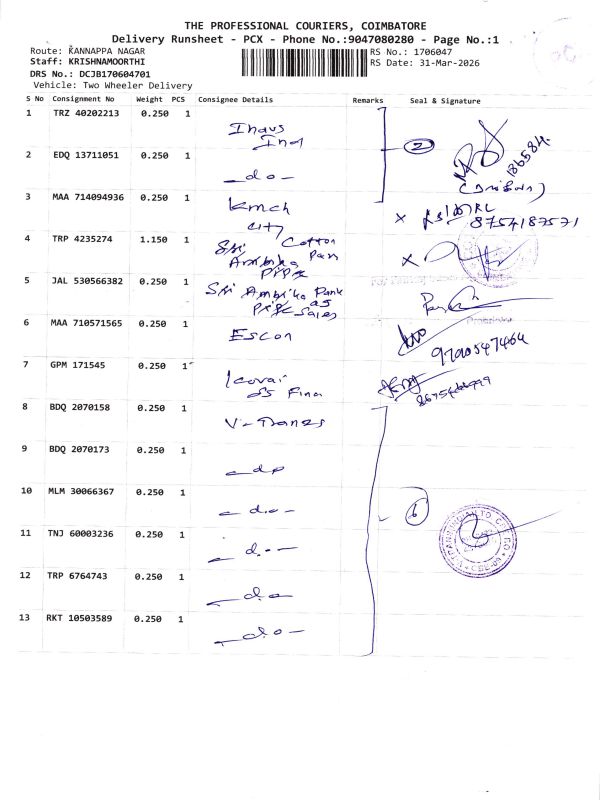 THE PROFESSIONAL COURIERS, COIMBATORE
Delivery Runsheet - PCX - Phone No.:9047080280 - Page No.:1
Route: KANNAPPA NAGAR
RS No.: 1706047
Staff: KRISHNAMOORTHI
RS Date: 31-Mar-2026
DRS No.: DCJB170604701
Vehicle: Two Wheeler Delivery
S No Consignment No Weight PCS Consignee Details Remarks Seal & Signature
1 TRZ 40202213 0.250 1
2 EDQ 13711051 0.250 1 - do - 2
186584
3 MAA 714094936 0.250 1 kmch city
8754187571
4 TRP 4235274 1.150 1 Sri Ambika Cotton
5 JAL 530566382 0.250 1 Sri Ambika Sales
6 MAA 710571565 0.250 1 Escon
9700547464
7 GPM 171545 0.250 1
8 BDQ 2070158 0.250 1 V-Trans
9 BDQ 2070173 0.250 1 - do
10 MLM 30066367 0.250 1 - do - 6
11 TNJ 60003236 0.250 1 - do -
12 TRP 6764743 0.250 1 - do
13 RKT 10503589 0.250 1 - do -